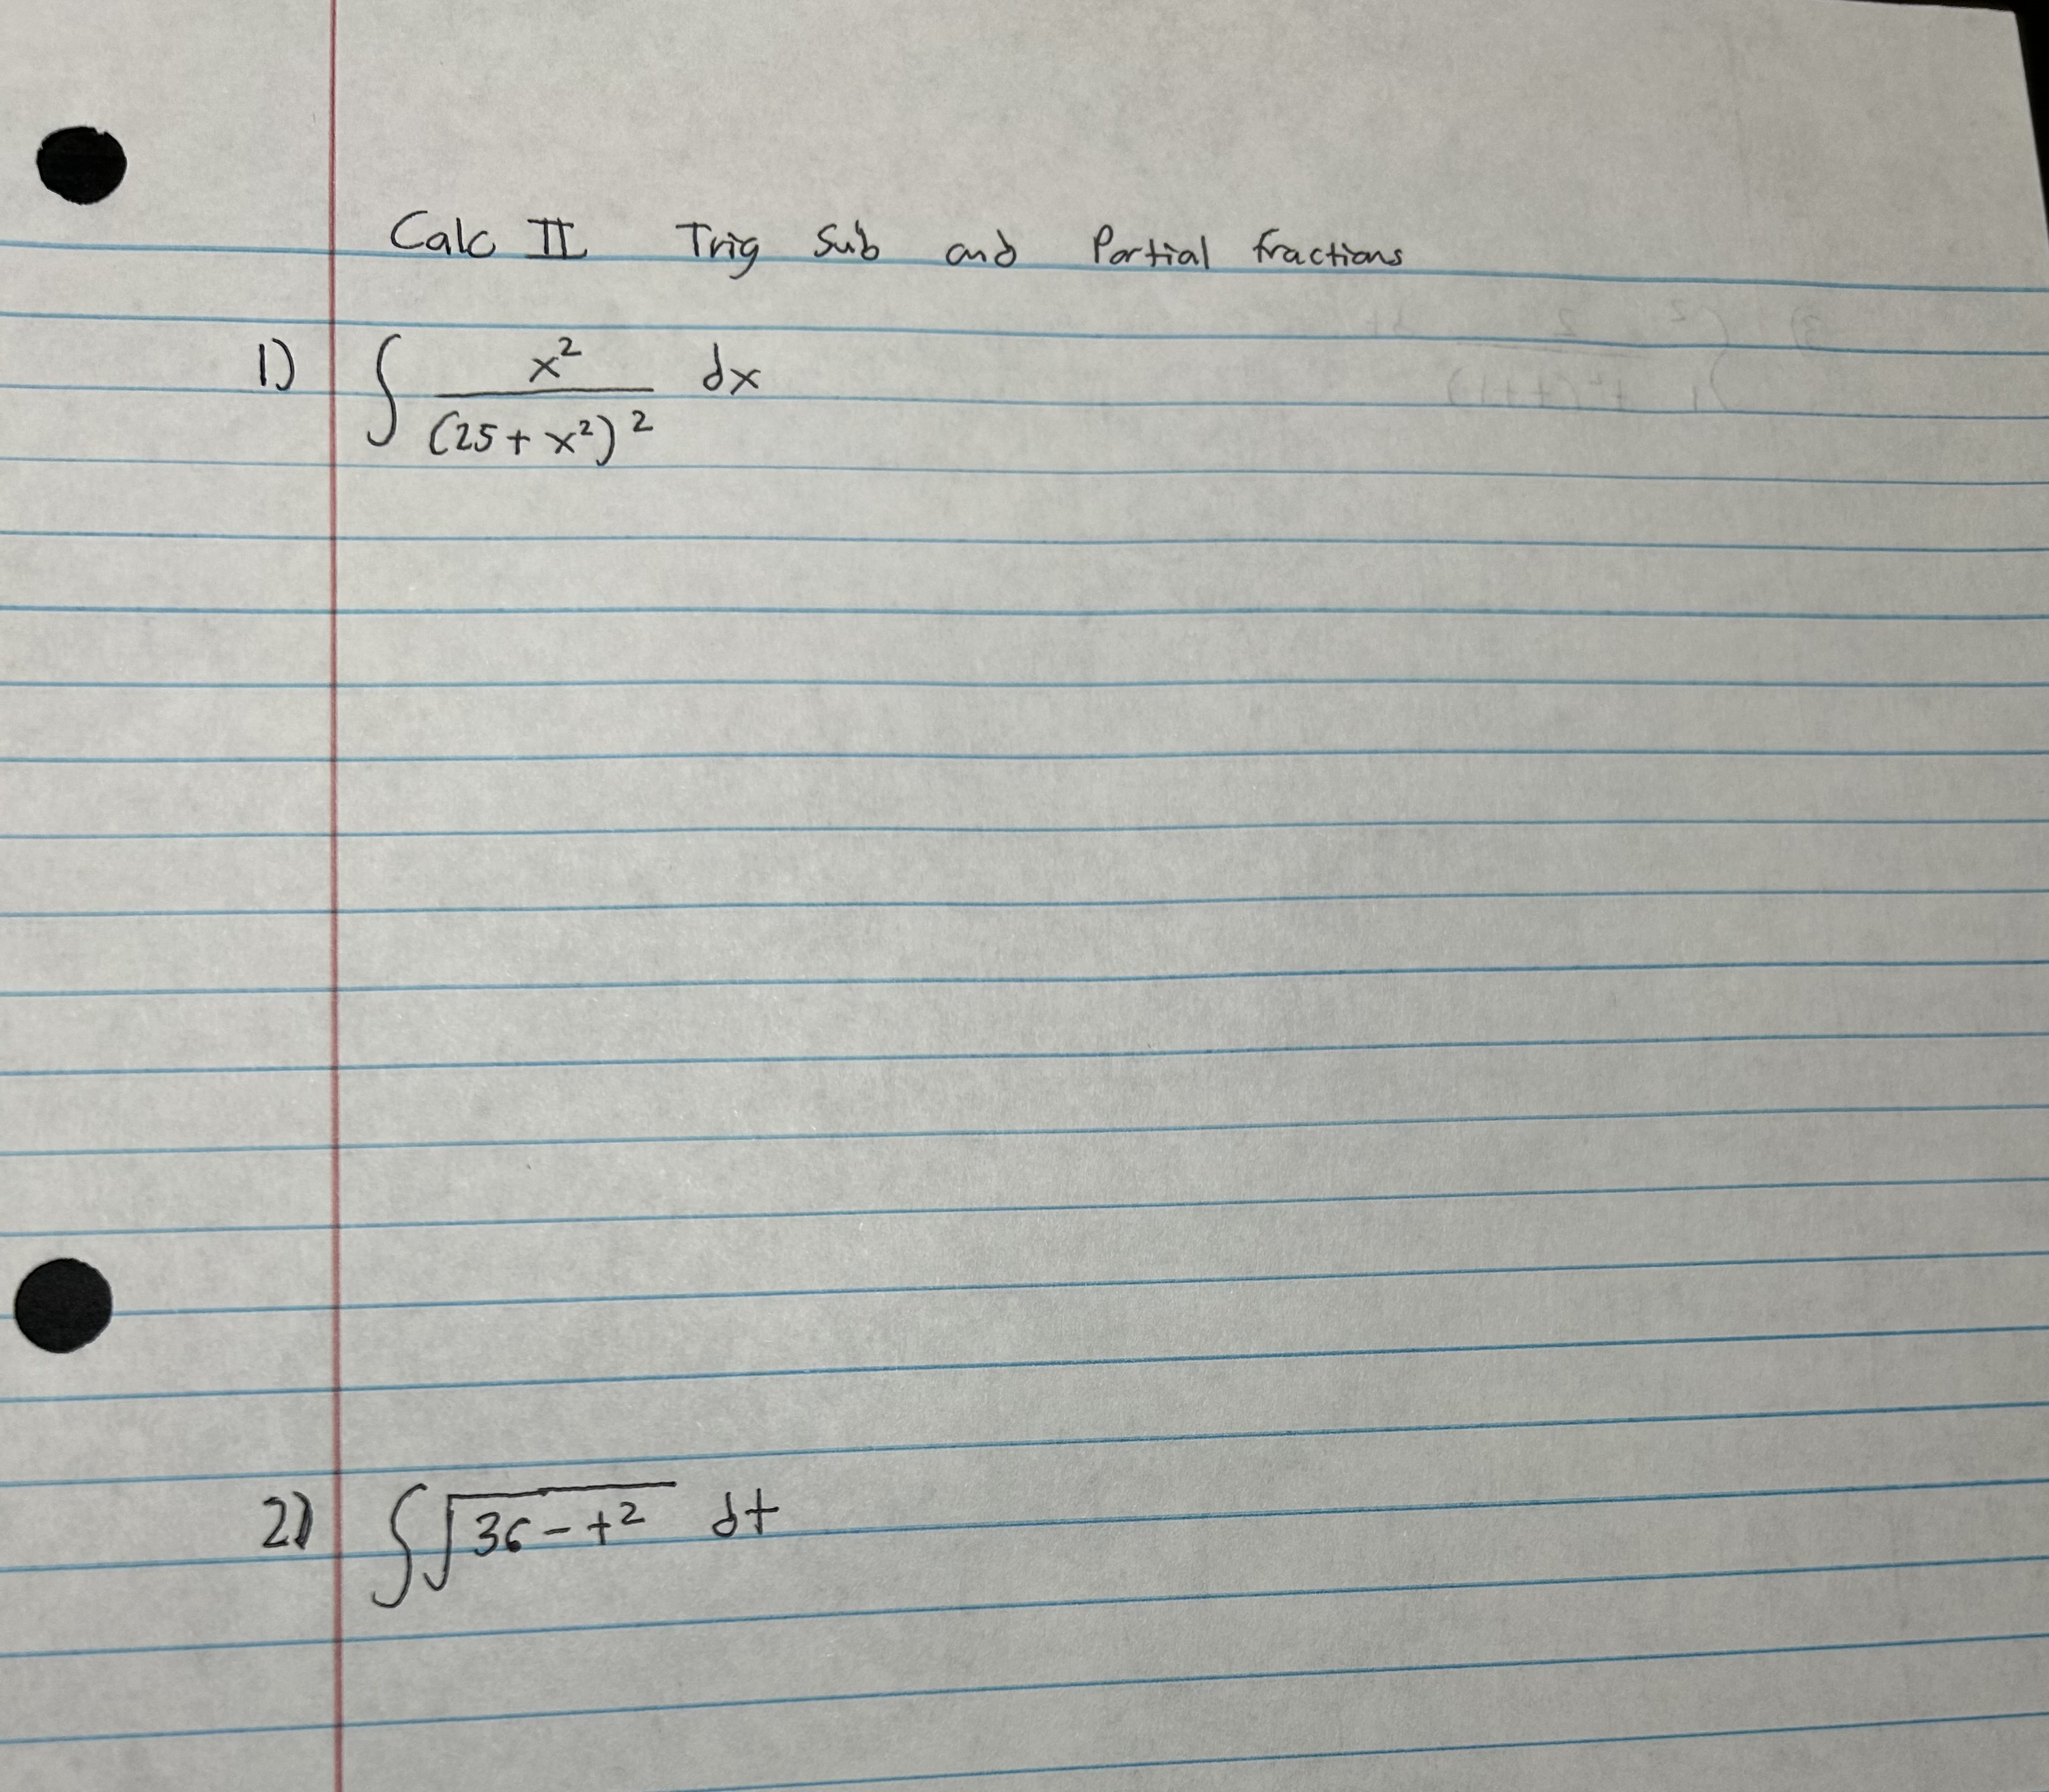 Calc II Trig Sub and Partial fractions
1) ∫ x² / (25 + x²)² dx
2) ∫ √(36 - t²) dt